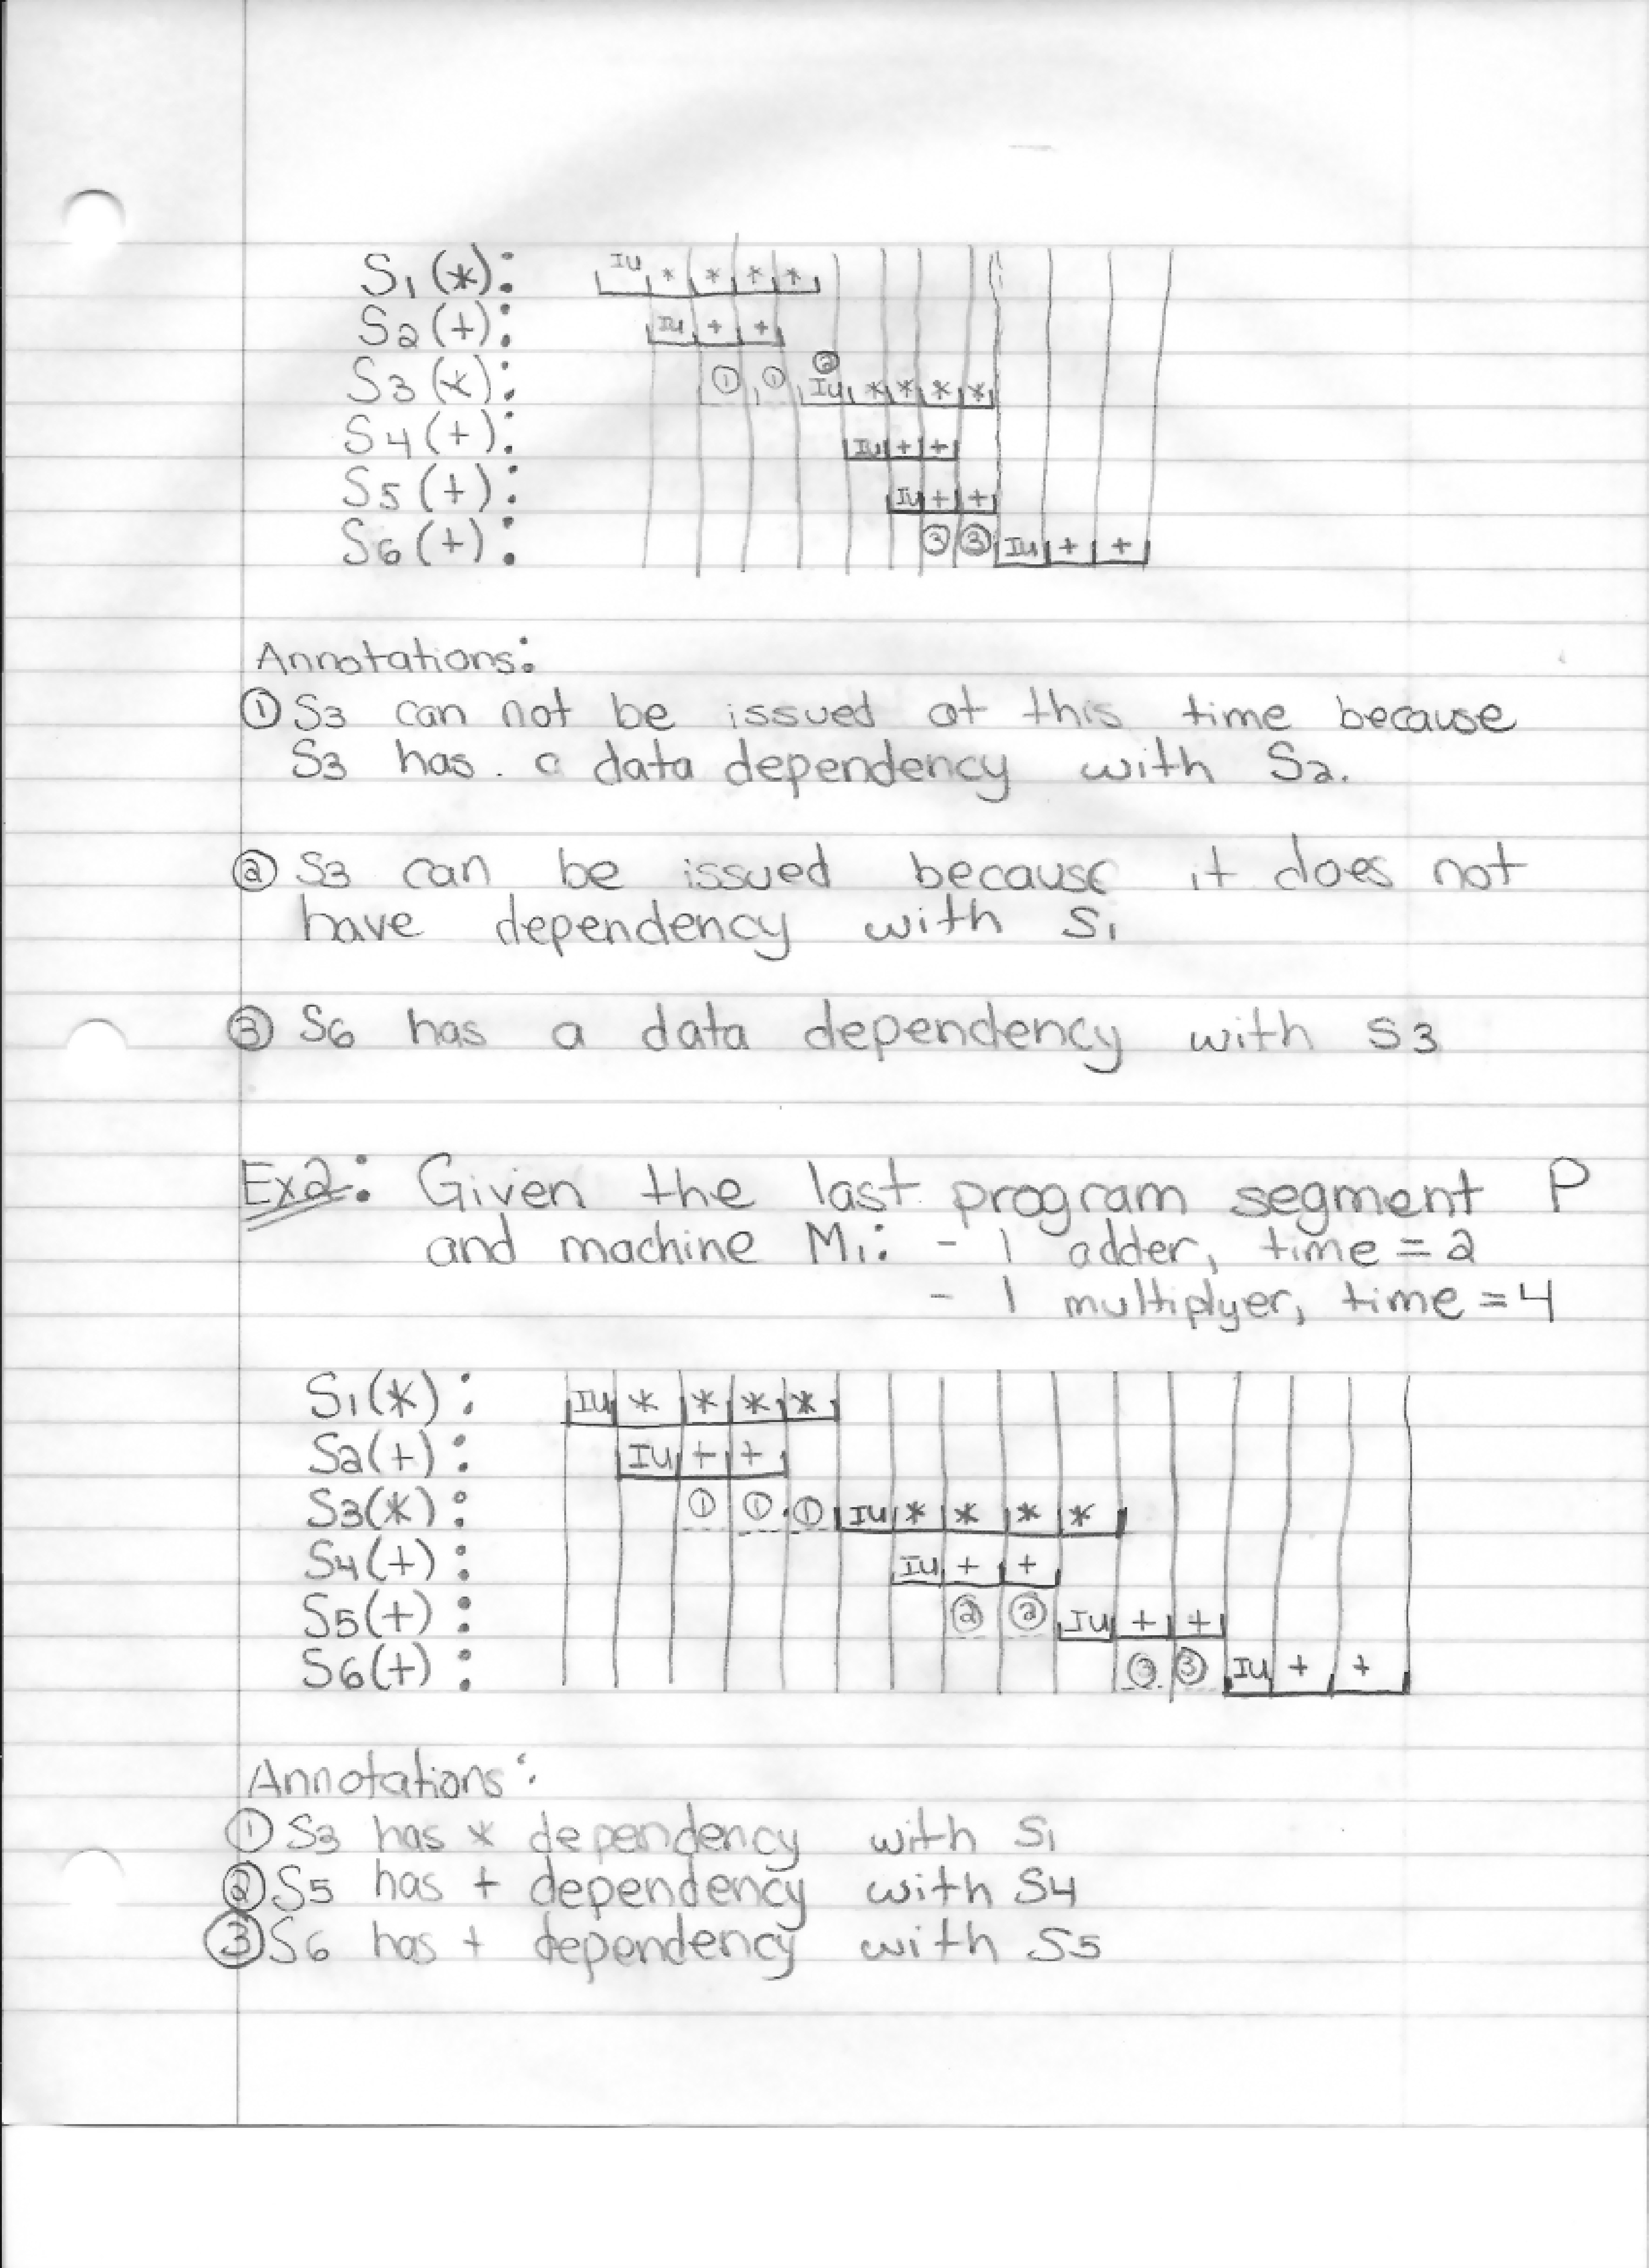 S1(*): IU * * * *
S2(+): IU + +
S3(*): ① ① ② IU * * * *
S4(+): IU + +
S5(+): IU + +
S6(+): ③ ③ IU + +
Annotations:
① S3 can not be issued at this time because
S3 has a data dependency with S2.
② S3 can be issued because it does not
have dependency with S1
③ S6 has a data dependency with S3
Ex2: Given the last program segment P
and machine M1: - 1 adder, time = 2
- 1 multiplyer, time = 4
S1(*): IU * * * *
S2(+): IU + +
S3(*): ① ① ① IU * * * *
S4(+): IU + +
S5(+): ② ② IU + +
S6(+): ③ ③ IU + +
Annotations:
① S3 has * dependency with S1
② S5 has + dependency with S4
③ S6 has + dependency with S5